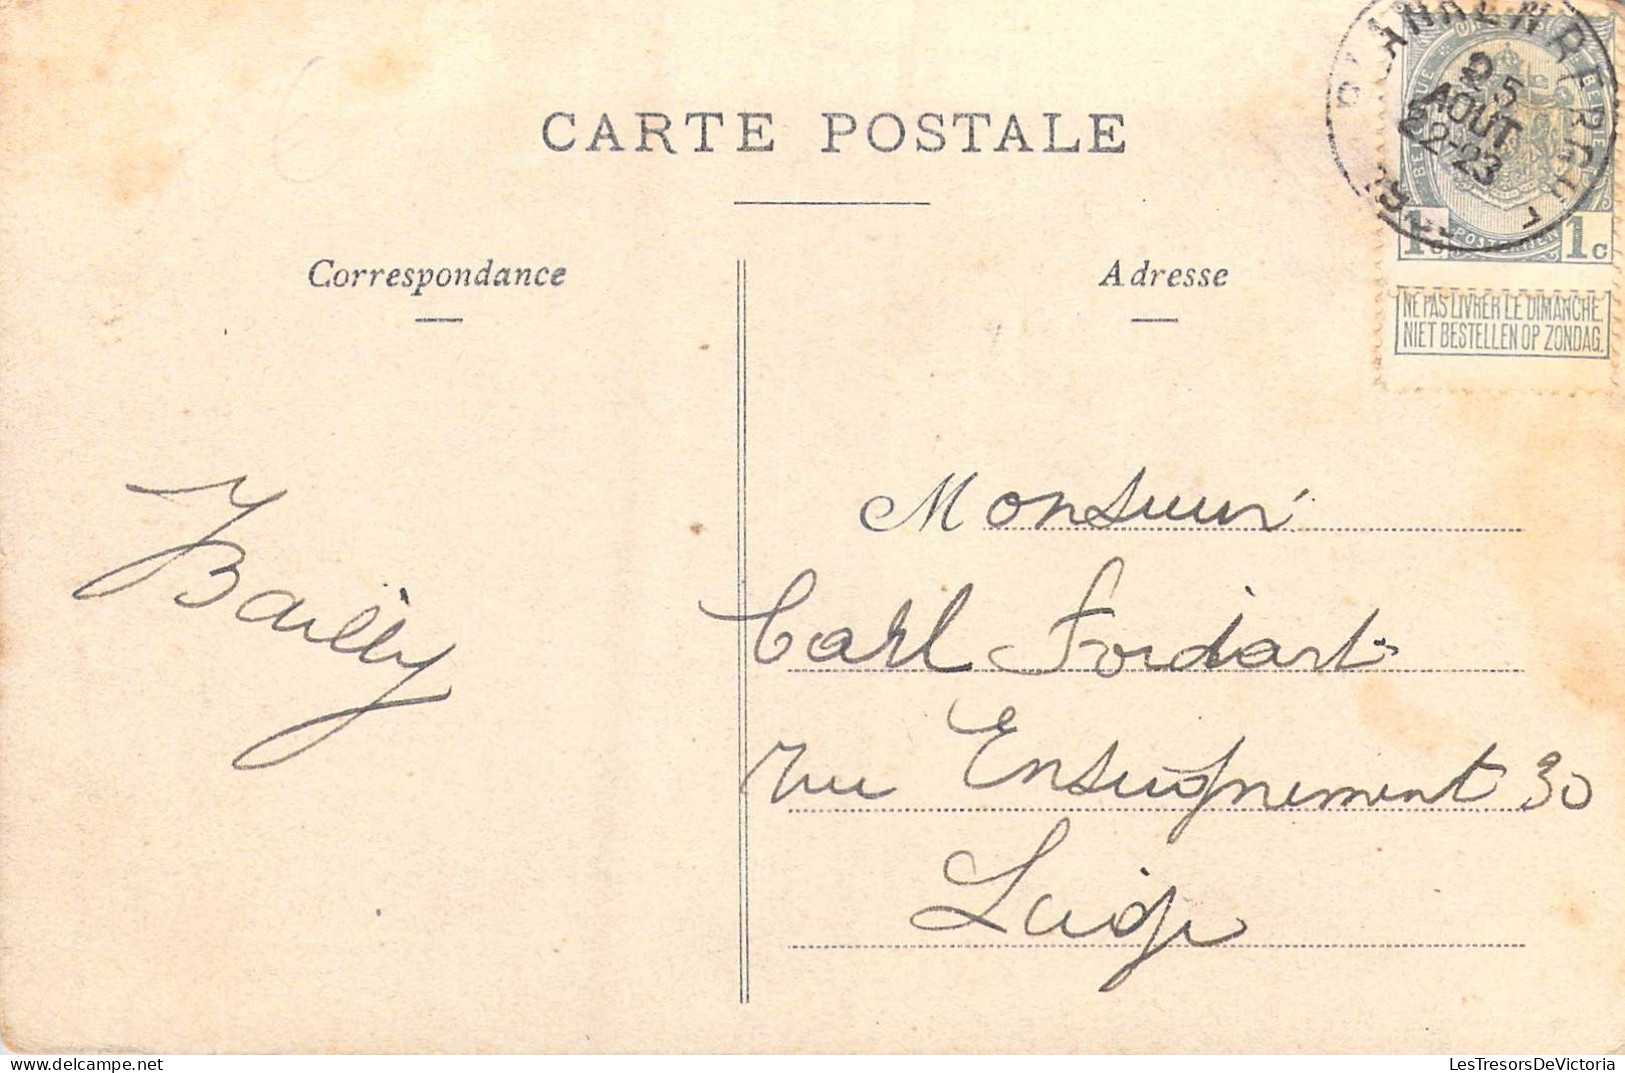 CARTE POSTALE
Correspondance
Adresse
25
AOUT
22-23
BELGIQUE
BELGIE
POSTERIJEN
1c
1c
NE PAS LIVRER LE DIMANCHE.
NIET BESTELLEN OP ZONDAG.
Bailly
Monsieur
Carl Fordart
rue Enseignement 30
Liége
LesTresorsDeVictoria